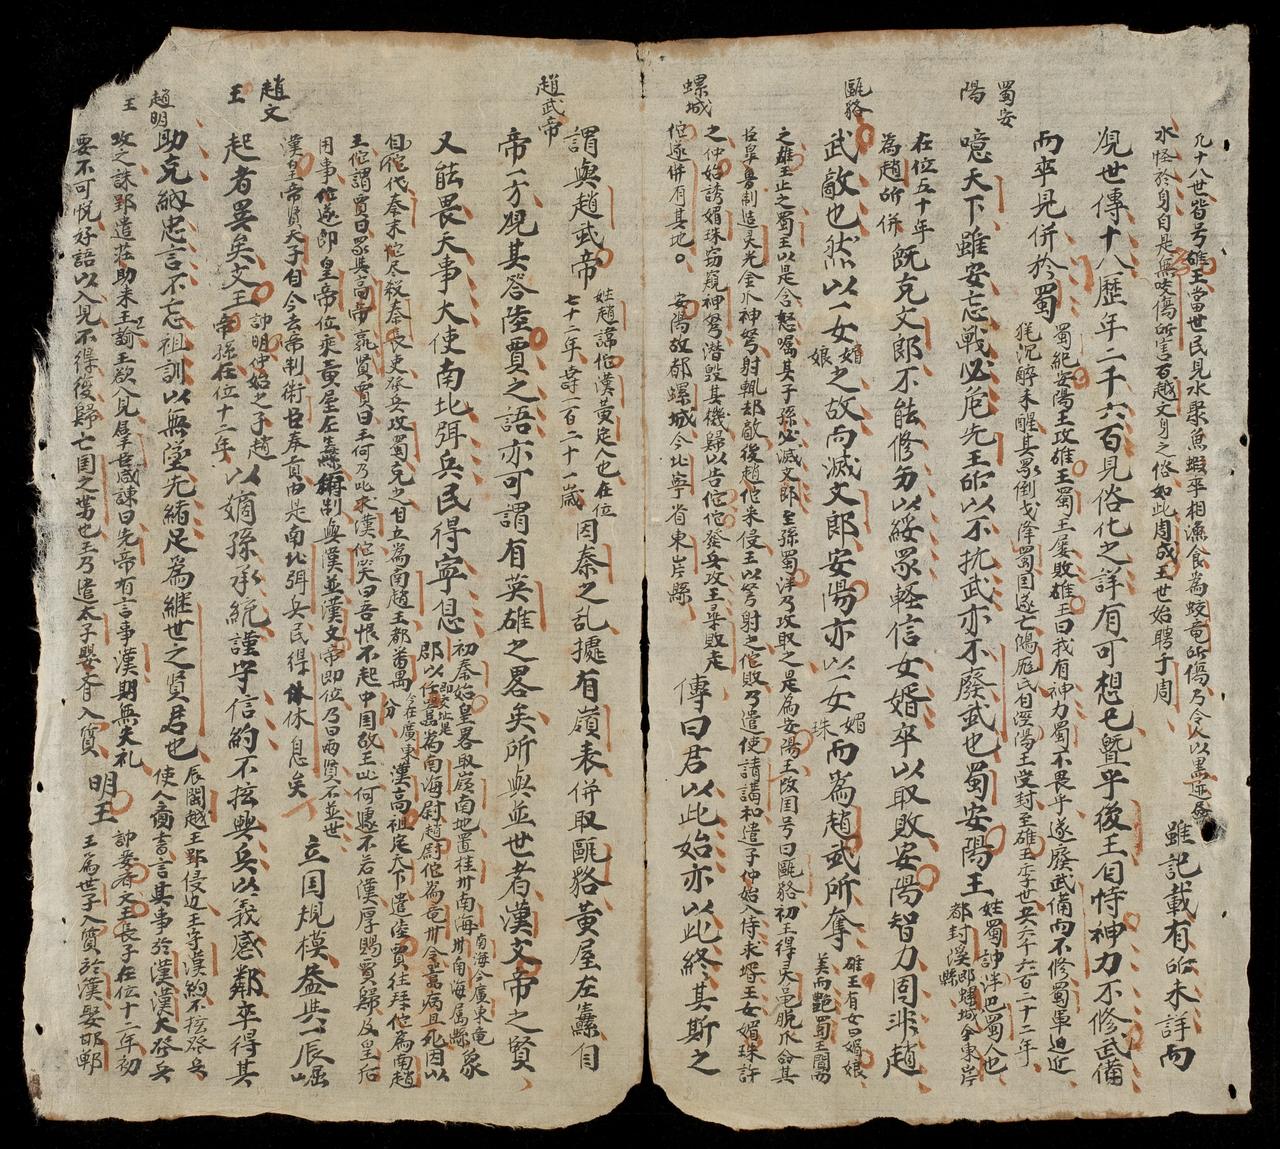 凡十八世皆号雄王當世民見水聚魚蝦卒相漁食為蛟竜所傷乃令人以墨
水怪於身自是無咬傷所害百越文身之俗如此周成王世始聘于周
雖記載有所未詳而
况世傳十八歷年二千六百見俗化之詳有可想已暨乎後王自恃神力不修武備
而卒見併於蜀
蜀紀安陽王攻雄王蜀王屡敗雄王曰我有神力蜀不畏乎遂廢武備而不修蜀軍迫近
猶沉醉未醒其眾倒戈降蜀国遂亡
蜀安
陽
噫天下雖安忘戰必危先王所以不抗武亦不廢武也蜀安陽王
姓蜀諱泮巴蜀人也
都封溪即螺城今東岸縣
在位五十年
為趙所併
既克文郎不能修勿以綏眾軽信女婿卒以取敗安陽智力固非趙
甌貉
武敵也然以一女
媚
娘
之故而滅文郎安陽亦以一女
媚
珠
而為趙武所奪
雄王有女曰媚娘
美而艷蜀王聞
之雄王止之蜀王以是含怒嘱其子孫必滅文郎至孫蜀泮乃攻取之是為安陽王改国号曰甌貉初王得灵亀脱爪命其
臣皐魯制造灵光金爪神弩射輒却敵後趙佗来侵王以弩射之佗敗乃遣使請講和遣子仲始入侍求婿王女媚珠許
螺城
之仲始誘媚珠窃窺神弩潜毁其機歸以告佗佗發兵攻王王敗走
佗遂併有其地。
安陽故都螺城今北寧省東岸縣
傳曰君以此始亦以此終其斯之
趙武帝
謂與趙武帝
姓趙諱佗漢真定人也在位
七十二年壽一百二十一歲
因秦之乱據有嶺表併取甌貉黄屋左纛自
帝一方观其答陸賈之語亦可謂有英雄之畧矣所與並世者漢文帝之賢
又能畏天事大使南北弭兵民得寧息
初秦始皇畧取嶺南地置桂州南海
郡以任囂為南海尉趙佗為竜川令囂病且死因以
佗代秦末佗尽殺秦長吏發兵攻蜀克之自立為南趙王都番禺
今在廣東
漢高祖定天下遣陸賈往拜佗為南趙
王佗謂賈曰眾與高帝孰賢賈曰王何乃比漢佗笑曰吾恨不起中国故王此何遽不若漢厚賜賈歸及皇后
用事佗遂即皇帝位乘黄屋左纛称制與漢並漢文帝即位乃曰两賢不並世
漢皇帝賢天子自今去帝制術臣奉貢由是南北弭兵民得休息矣
立国規模盖其一辰崛
趙文
王
起者異矣文王
諱明仲始之子趙
帝孫在位十二年
以嫡孫承統謹守信約不拡興兵以義感鄰卒得其
助克納忠言不忘祖訓以無墜先緒足為継世之賢君也
辰閩越王郢侵边王守漢約不拡發兵
使人奏言其事於漢漢大發兵
攻之誅郢遣莊助来王諭王欲入見群臣咸諫曰先帝有言事漢期無失礼
要不可悅好語以入見不得復歸亡国之势也王乃遣太子嬰齊入質
趙明
王
明王
諱嬰齊文王長子在位十二年初
王為世子入質於漢娶邯鄲